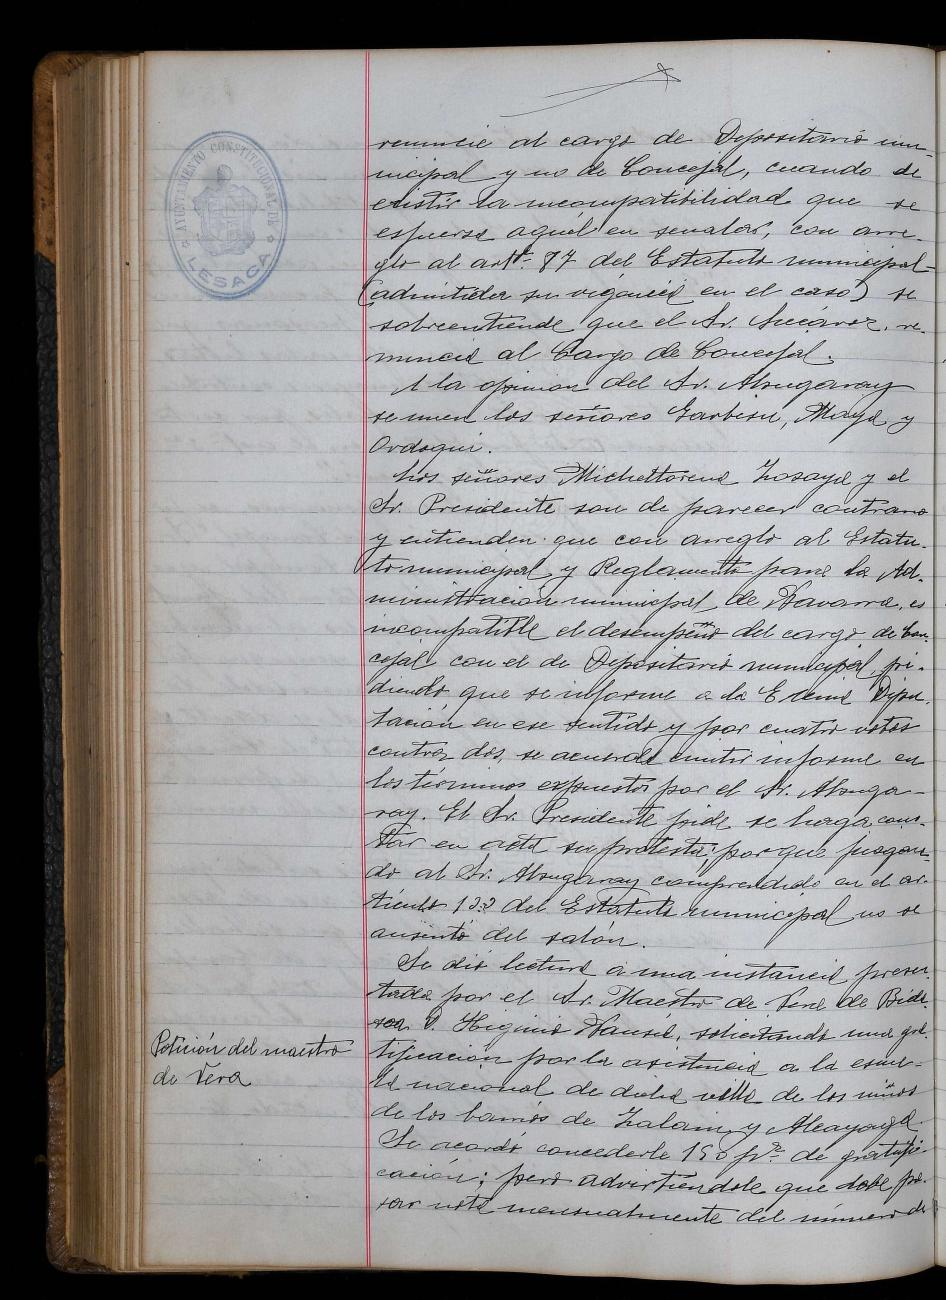 AYUNTAMIENTO CONSTITUCIONAL DE
LESACA
renuncie al cargo de Depositario mu-
nicipal y no de Concejal, cuando de
existir la incompatibilidad que se
esfuerza aquél en señalar, con arre-
glo al artº. 87 del Estatuto municipal
(admitida su vigencia en el caso) se
sobreentiende que el Sr. re-
nuncia al Cargo de Concejal.
A la opinion del Sr. Abugaray
se unen los señores Garbisu, Maya y
Ordoqui.
Los señores Michettorena Zosaya y el
Sr. Presidente son de parecer contrario
y entienden que con arreglo al Estatu-
to municipal y Reglamento para la Ad-
ministración municipal de Navarra, es
incompatible el desempeño del cargo de Con-
cejal con el de Depositario municipal, pi-
diendo que se informe a la Excma Dipu-
tación en ese sentido y por cuatro votos
contra dos, se acuerda emitir informe en
los términos expuestos por el Sr. Abuga-
ray. El Sr. Presidente pide se haga cons-
tar en acta su protesta, por que juzgan-
do al Sr. Abugaray comprendido en el ar-
tículo del Estatuto municipal no se
ausentó del salón.
Se dió lectura a una instancia presen-
tada por el Sr. Maestro de Vera de Bida-
soa D. Higinio, solicitando una gra-
tificación por la asistencia a la escue-
la nacional de dicha villa de los niños
de los barrios de Zalain y Alcayaga.
Se acordó concederle 150 pts. de gratifi-
cación; pero advirtiéndole que debe pa-
sar nota mensualmente del número de
Petición del maestro
de Vera